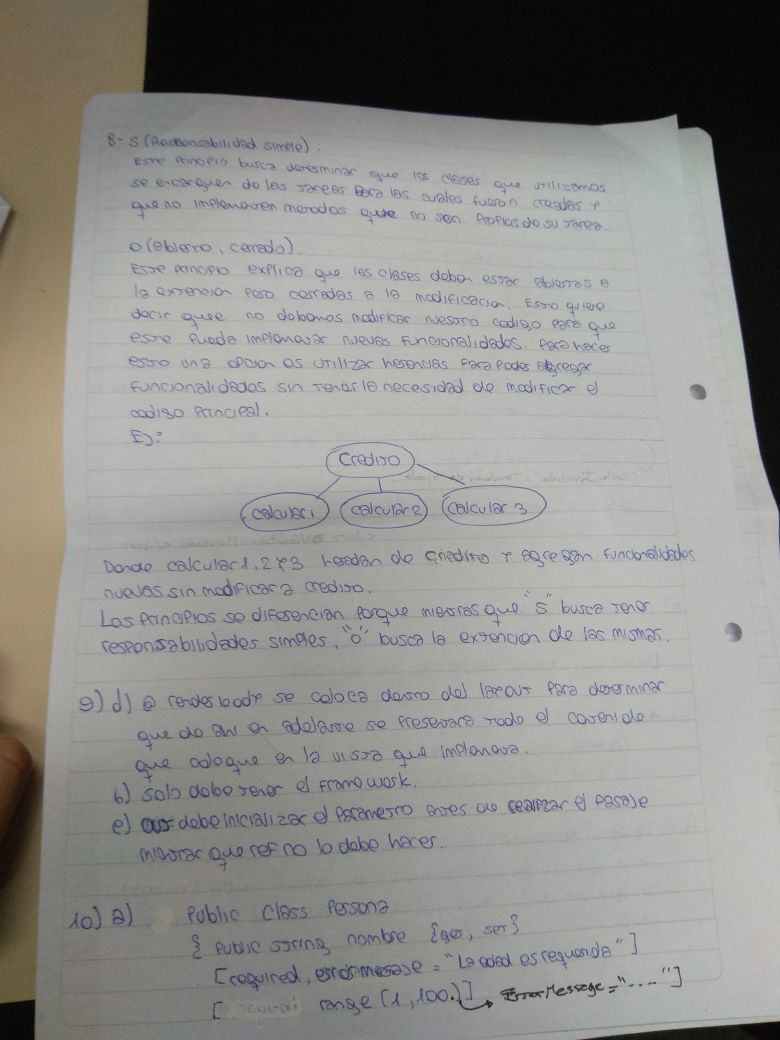 8- S (Responsabilidad simple).
Este principio busca determinar que las clases que utilizamos
se encarguen de las tareas para las cuales fueron creadas y
que no implementen metodos que no sen propios de su tarea.
O (abierto, cerrado).
Este principio explica que las clases deben estar abiertas a
la extencion pero cerradas a la modificacion. Esto quiere
decir que no debemos modificar nuestro codigo para que
este pueda implementar nuevas funcionalidades. Para hacer
esto una opcion es utilizar herencias para poder agregar
funcionalidades sin tener la necesidad de modificar el
codigo principal.
Ej:
Credito
calcular 1 calcular 2 calcular 3
Donde calcular 1, 2 y 3 heredan de credito y agregan funcionalidades
nuevas sin modificar a credito.
Los principios se diferencian porque mientras que "S" busca tener
responsabilidades simples, "O" busca la extencion de las mismas.
9) d) @ renderbody se coloca dentro del layout para determinar
que de ahi en adelante se presentara todo el contenido
que coloque en la vista que implementa.
b) solo debe tener el framework.
e) out debe inicializar el parametro antes de realizar el pasaje
mientras que ref no lo debe hacer.
10) a) Public class Persona
{ Public string nombre {get, set}
[required, errormessage = "La edad es requerida"]
[ range (1, 100.)] ErrorMessage = "....."]